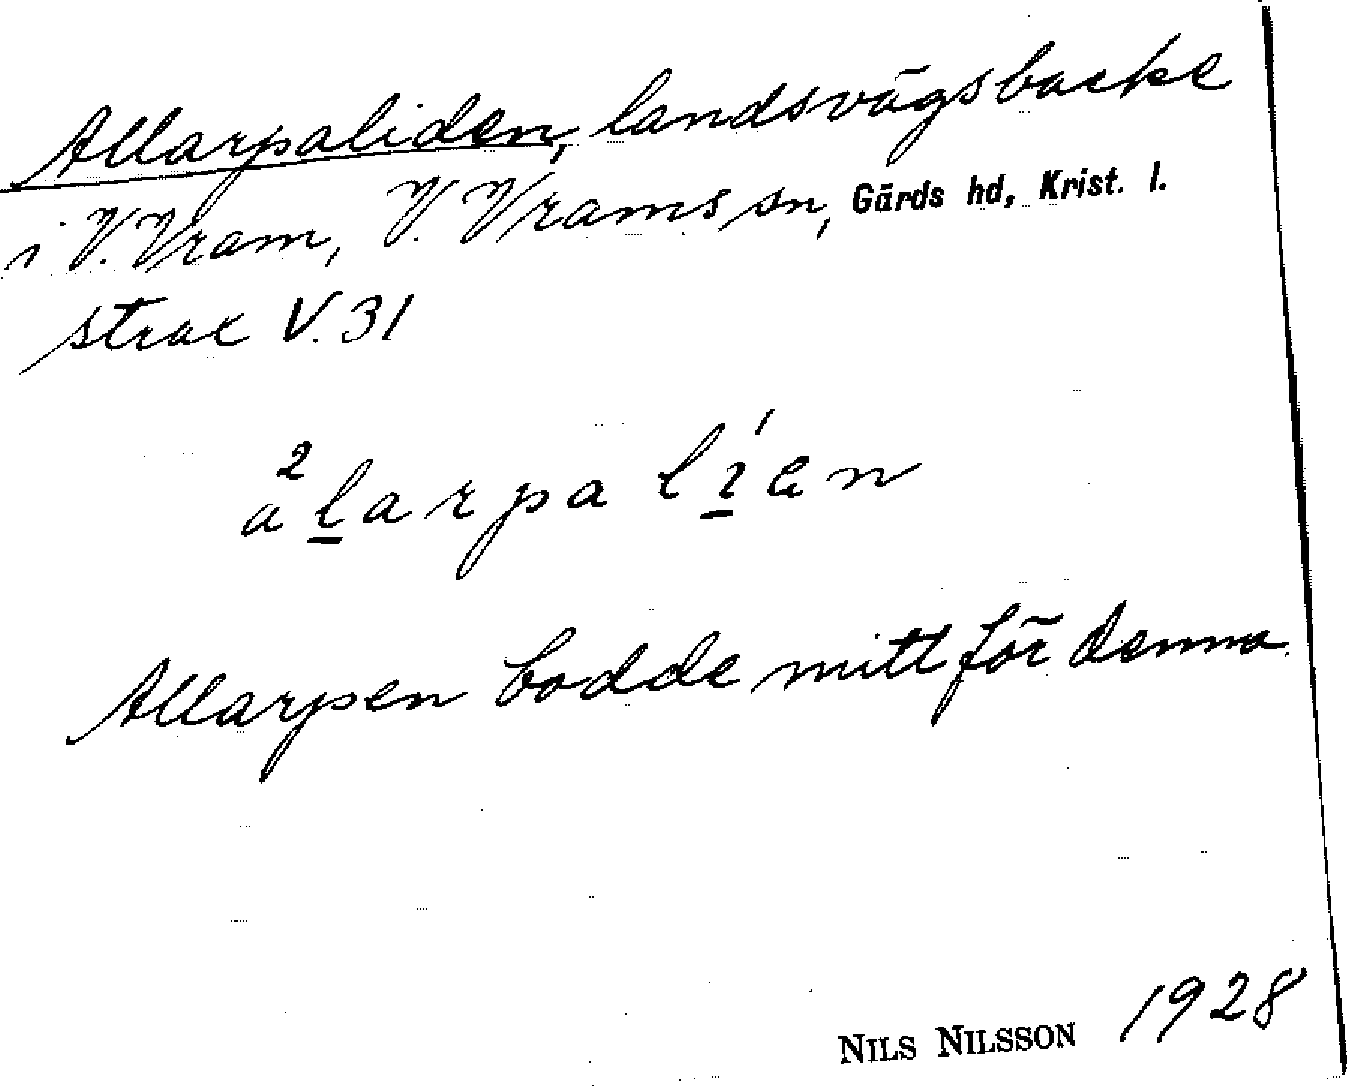 Allarpaliden, landsvägsbacke
i V. Vram, V. Vrams sn, Gärds hd, Krist. l.
strax V. 31
a²l̲arpa lí̲en
Allarpen bodde mitt för denna
NILS NILSSON 1928